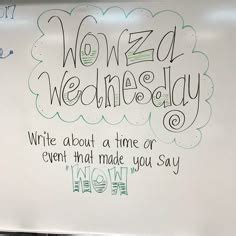 Wowza
Wednesday
Write about a time or
event that made you say
"WOW"